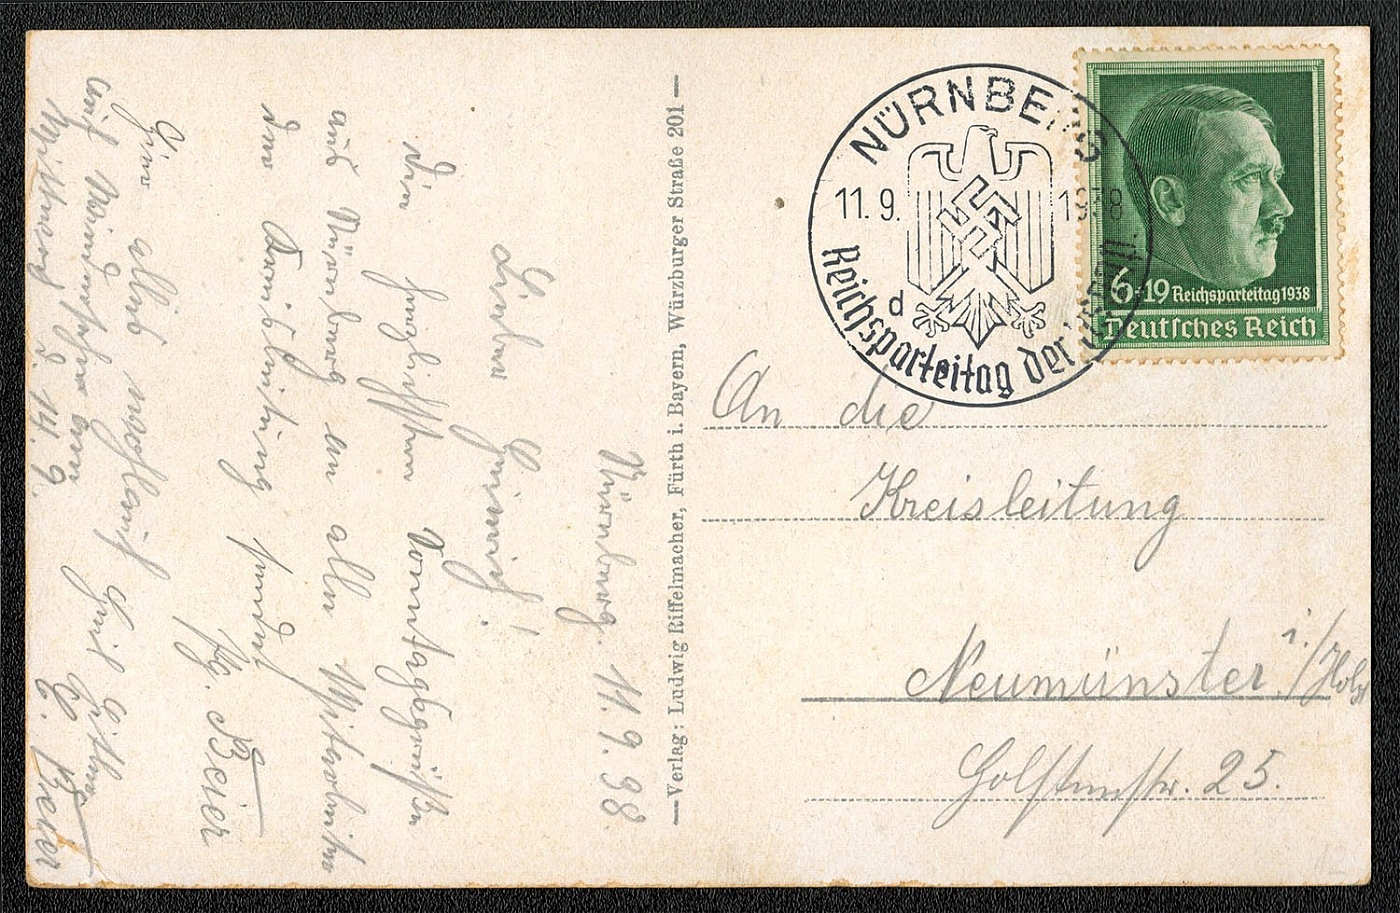 Nürnberg. 11.9.38.
Lieber Heinrich!
Die herzlichsten Sonntagsgrüße
aus Nürnberg an alle Mitarbeiter
der Kreisleitung sendet
Pg. Beier
Hier alles
auf
Mittwoch d. 14.9. E. Beier
Verlag: Ludwig Riffelmacher, Fürth i. Bayern, Würzburger Straße 201
NÜRNBERG
11.9. 1938
d
Reichsparteitag der
6+19 Reichsparteitag 1938
Deutsches Reich
An die
Kreisleitung
Neumünster i./Holst
Holstenstr. 25.